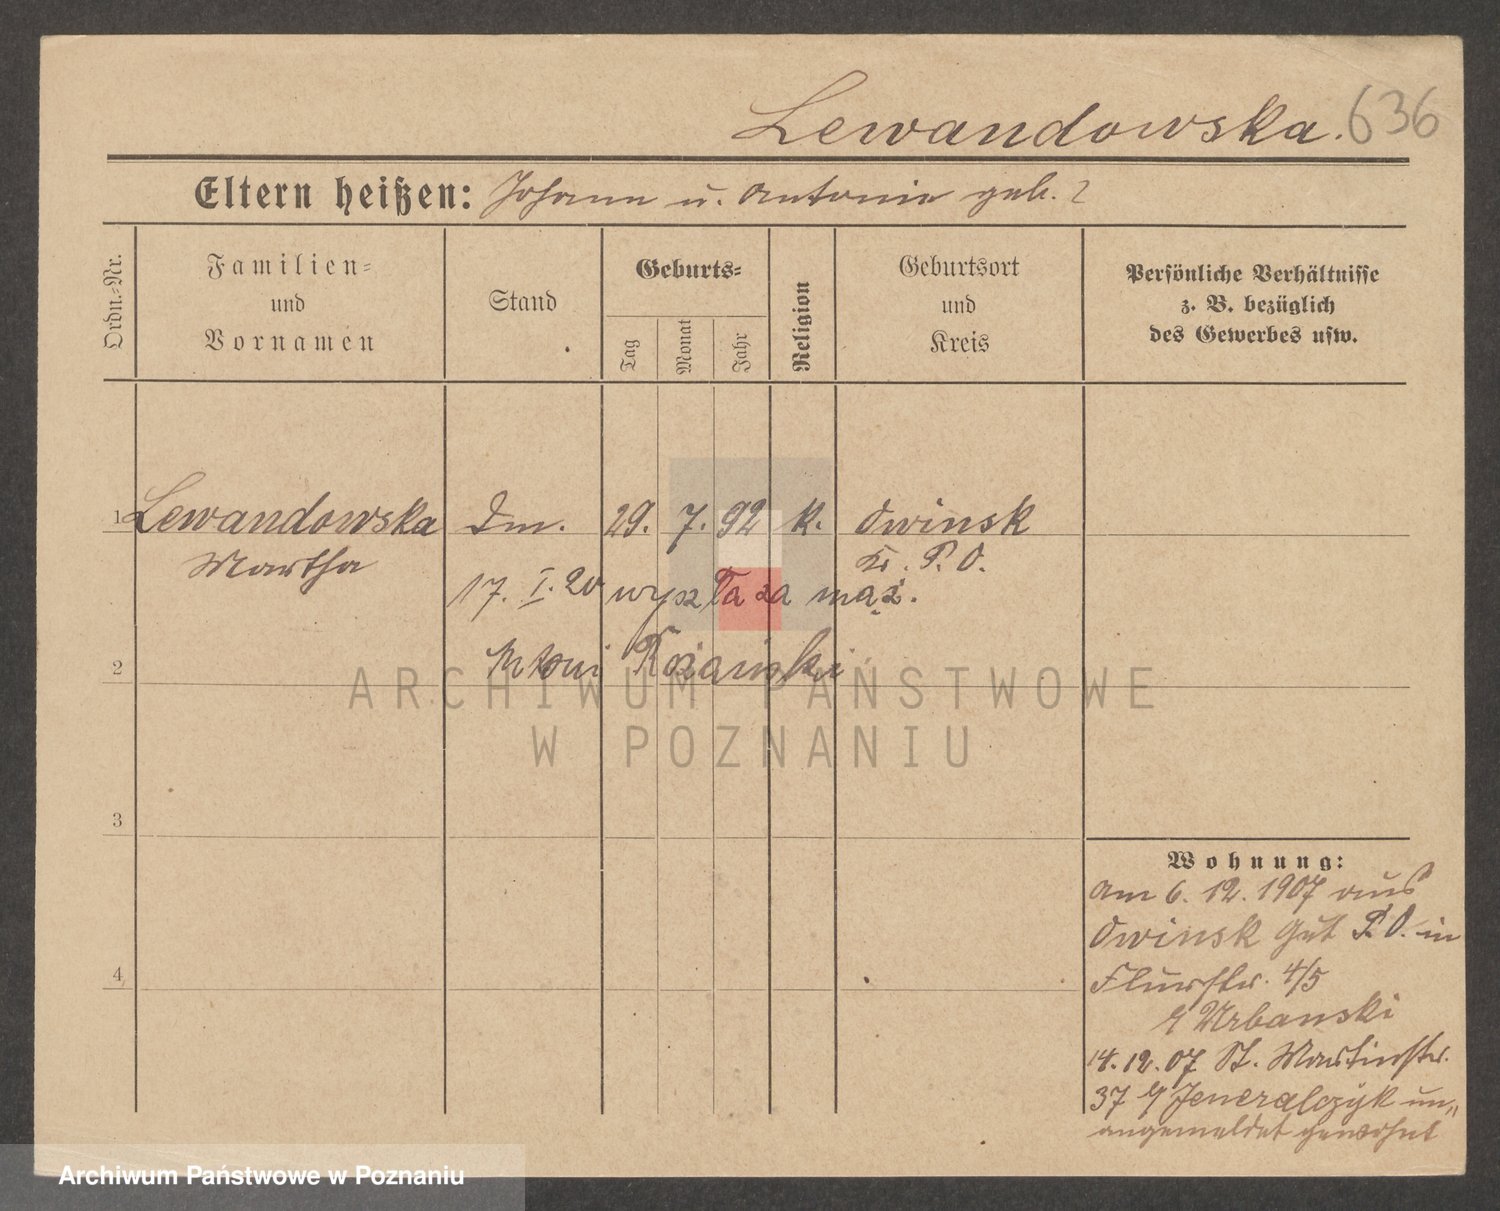 Lewandowska. 636
Eltern heißen: Johann u. Antonie geb. ?
Ordn.-Nr.
Familien-
und
Vornamen
Stand
Geburts-
Tag
Monat
Jahr
Religion
Geburtsort
und
Kreis
Persönliche Verhältnisse
z. B. bezüglich
des Gewerbes usw.
1 Lewandowska Dm. 29. 7. 92 k. Owinsk
Martha Kr. P. O.
17. I. 20 wyszła za mąż.
Antoni
2
ARCHIWUM PAŃSTWOWE
W POZNANIU
3
4
Wohnung:
am 6. 12. 1907 aus
Owinsk Gut P. O. in
Flurstr. 4/5
Urbanski
14. 12. 07 St. Martinstr.
37 Jeneralczyk un-
angemeldet gewohnt
Archiwum Państwowe w Poznaniu